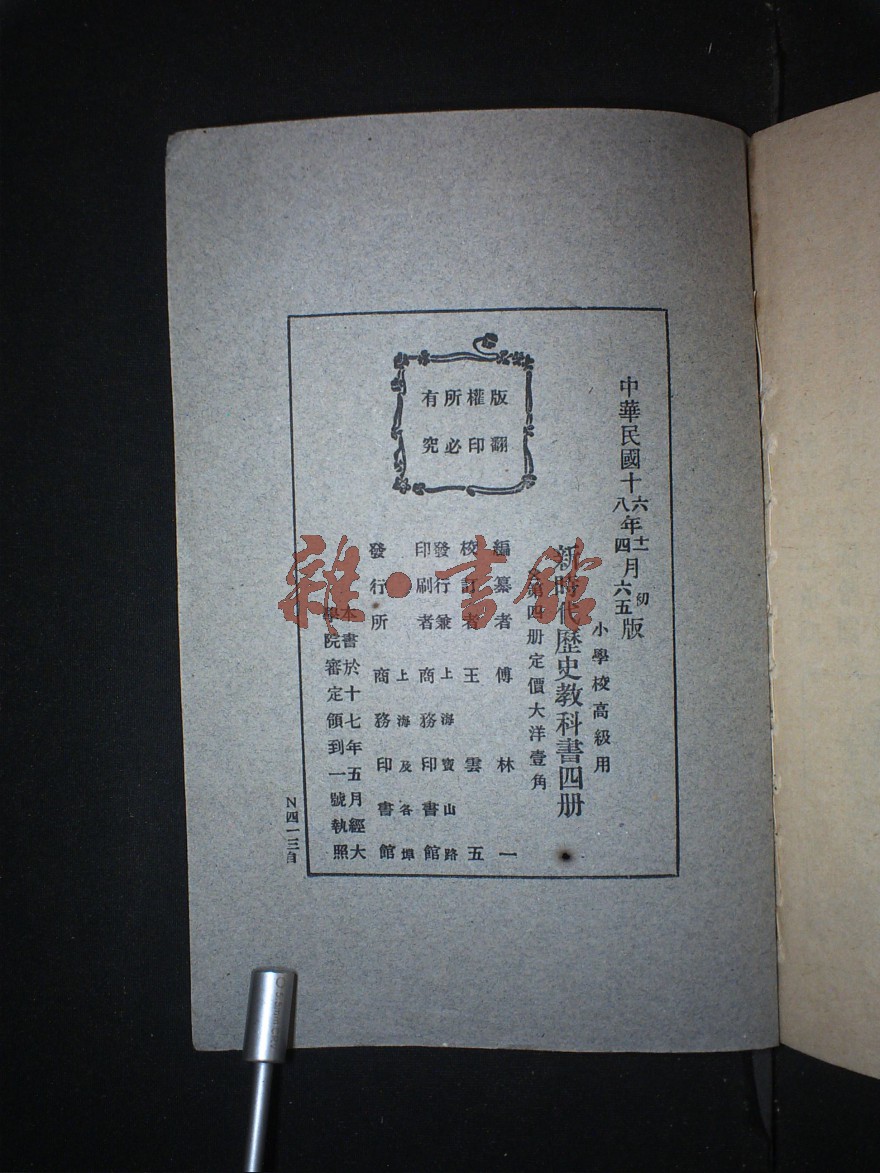 中華民國十六年十二月初版
八年四月六五版
小學校高級用
新時代歷史教科書四册
第四册定價大洋壹角
編纂者 傅林一
校訂者 王雲五
發行兼印刷者 上海寶山路商務印書館
發行所 上海及各埠商務印書館
本書於十七年五月經大
學院審定領到一號執照
版權所有
翻印必究
N四一三自
雜·書館